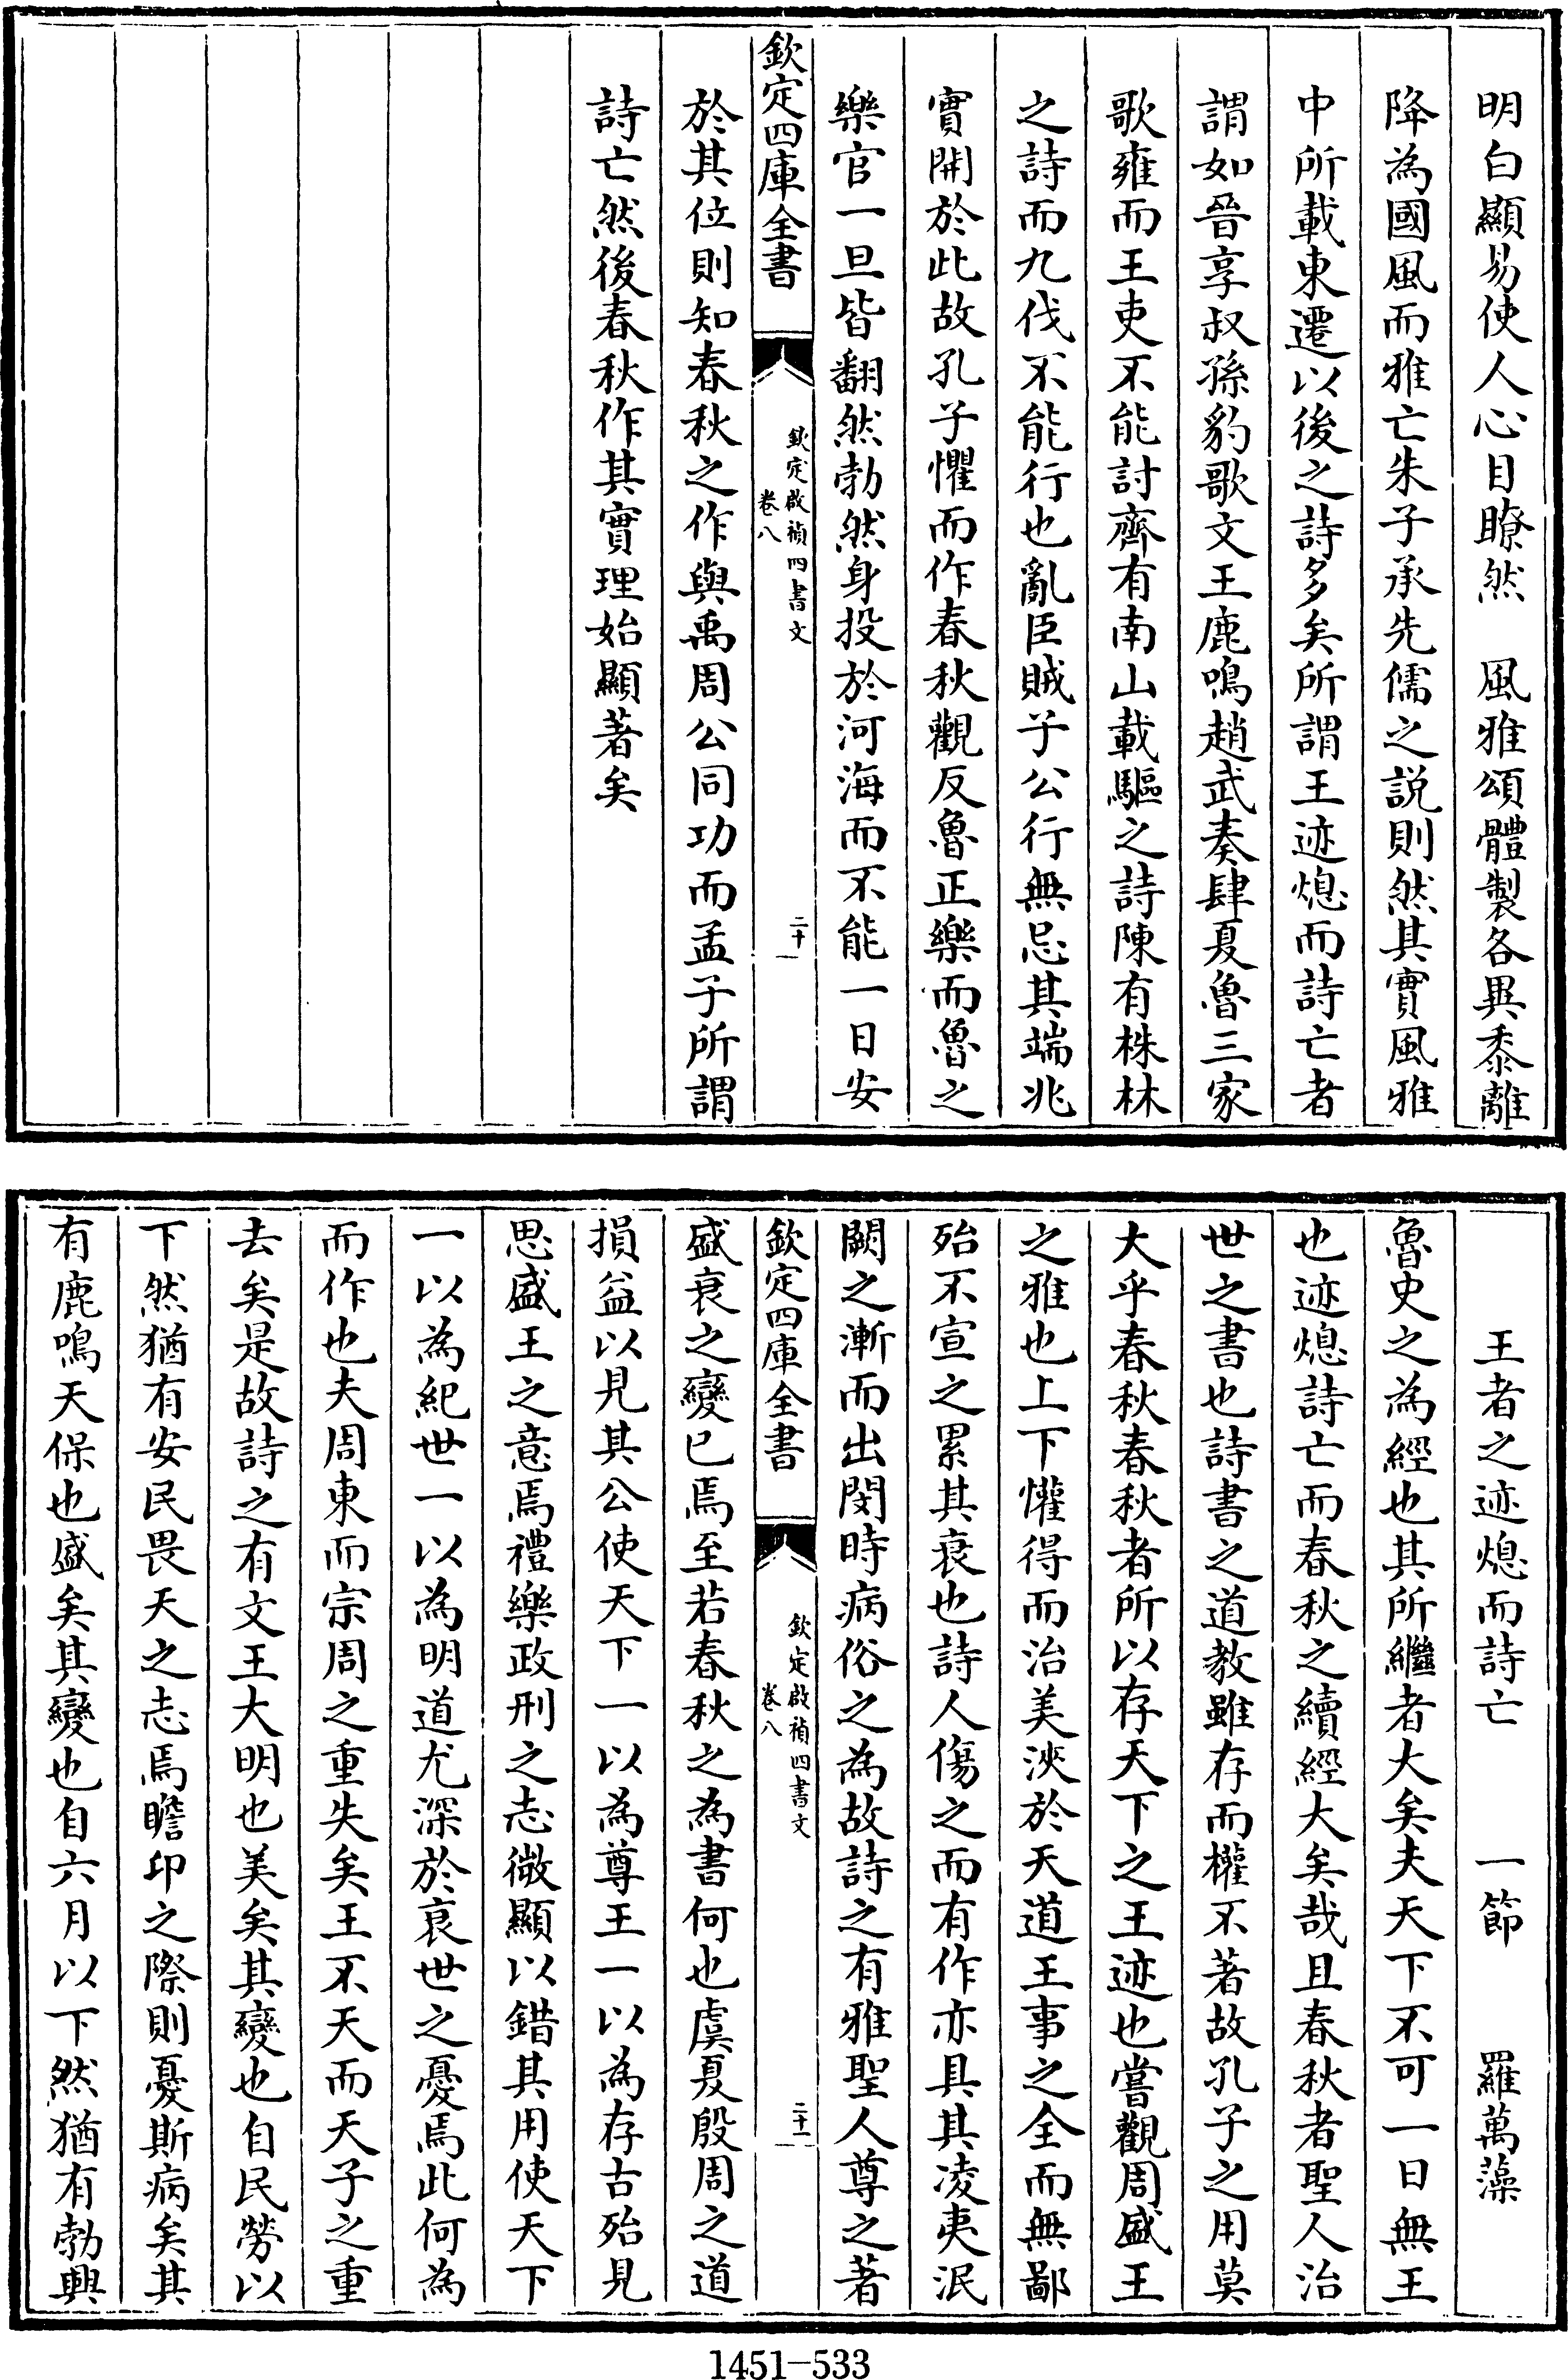 明白顯易使人心目瞭然　風雅頌體製各異黍離
降為國風而雅亡朱子承先儒之説則然其實風雅
中所載東遷以後之詩多矣所謂王迹熄而詩亡者
謂如晉享叔孫豹歌文王鹿鳴趙武奏肆夏魯三家
歌雍而王吏不能討齊有南山載驅之詩陳有株林
之詩而九伐不能行也亂臣賊子公行無忌其端兆
實開於此故孔子懼而作春秋觀反魯正樂而魯之
樂官一旦皆翻然勃然身投於河海而不能一日安
欽定四庫全書
欽定啟禎四書文
卷八
二十
於其位則知春秋之作與禹周公同功而孟子所謂
詩亡然後春秋作其實理始顯著矣
王者之迹熄而詩亡　一節　羅萬藻
魯史之為經也其所繼者大矣夫天下不可一日無王
也迹熄詩亡而春秋之續經大矣哉且春秋者聖人治
世之書也詩書之道教雖存而權不著故孔子之用莫
大乎春秋春秋者所以存天下之王迹也嘗觀周盛王
之雅也上下懽得而治美浹於天道王事之全而無鄙
殆不宣之累其衰也詩人傷之而有作亦具其凌夷泯
闕之漸而出閔時病俗之為故詩之有雅聖人尊之著
欽定四庫全書
欽定啟禎四書文
卷八
二十一
盛衰之變已焉至若春秋之為書何也虞夏殷周之道
損益以見其公使天下一以為尊王一以為存古殆見
思盛王之意焉禮樂政刑之志微顯以錯其用使天下
一以為紀世一以為明道尤深於衰世之憂焉此何為
而作也夫周東而宗周之重失矣王不天而天子之重
去矣是故詩之有文王大明也美矣其變也自民勞以
下然猶有安民畏天之志焉瞻卬之際則憂斯病矣其
有鹿鳴天保也盛矣其變也自六月以下然猶有勃興
1451-533